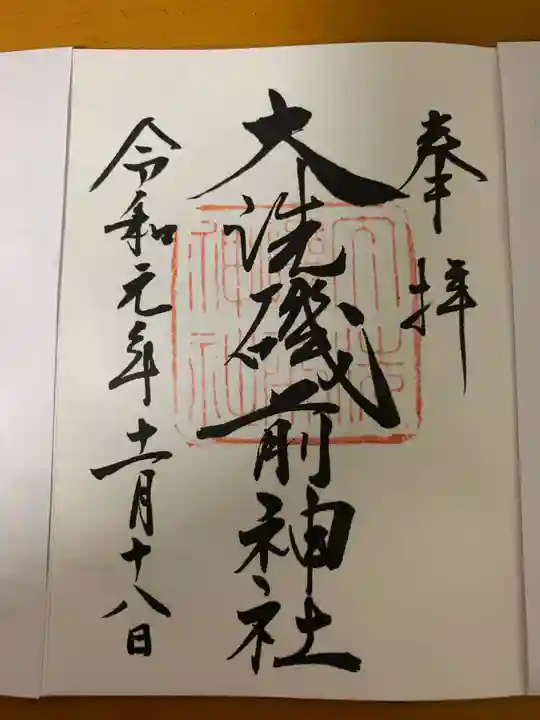 奉拝
大洗磯前神社
令和元年十一月十八日